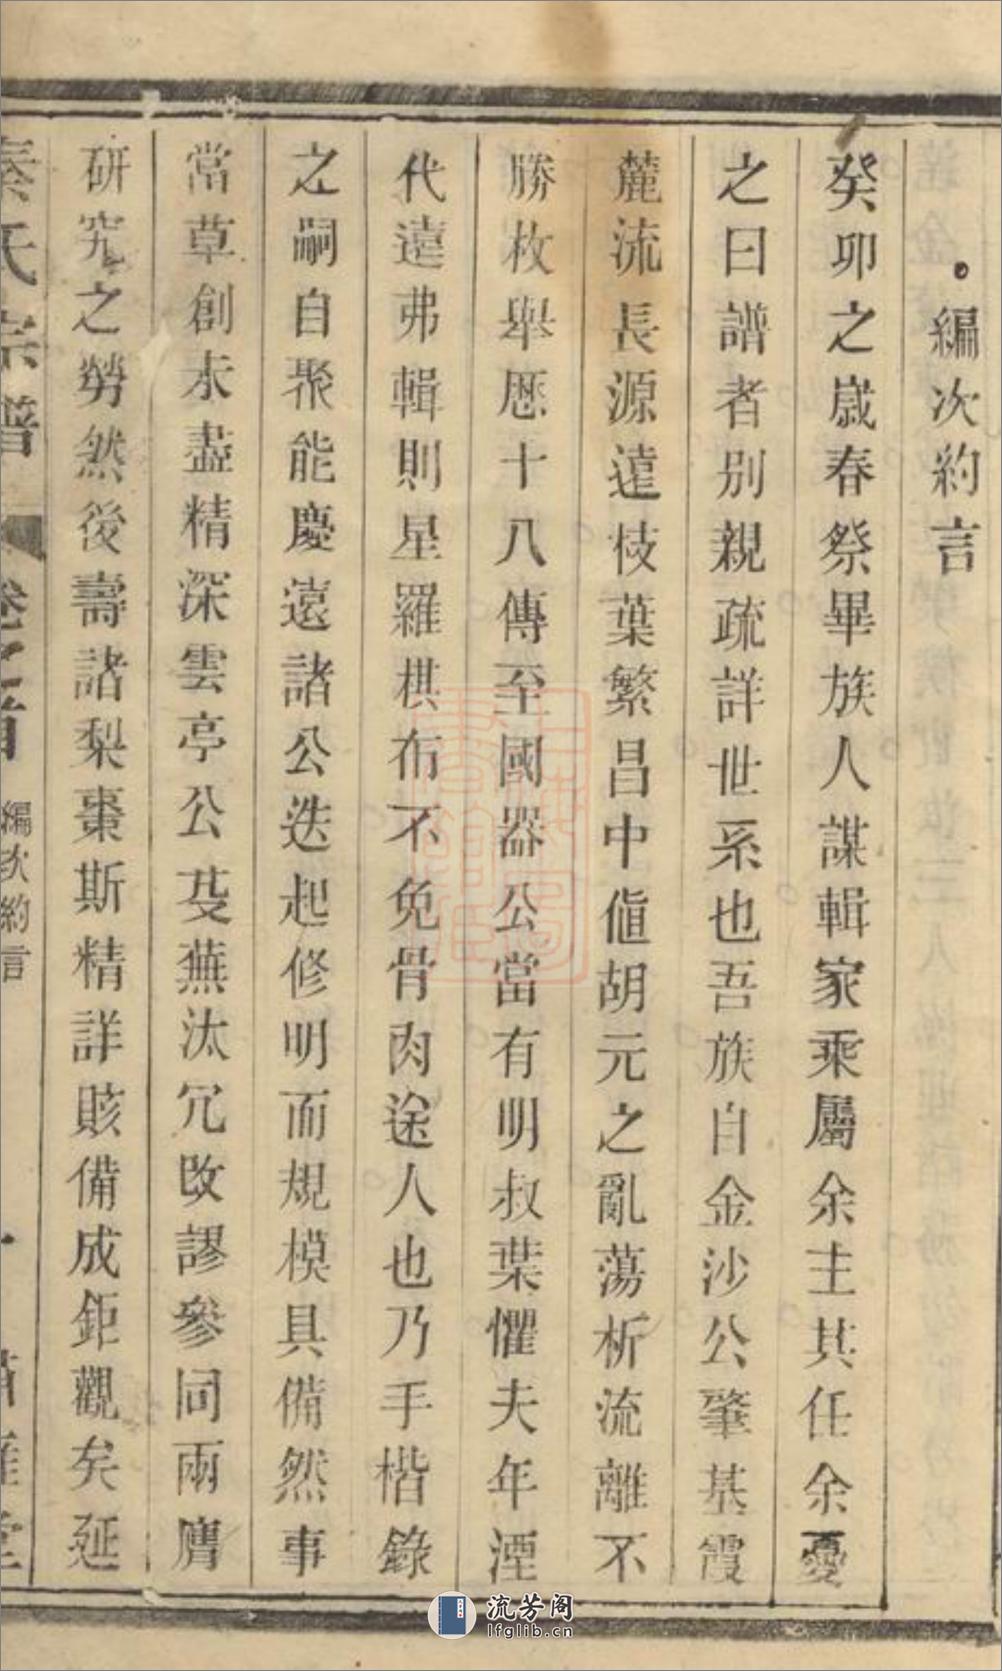 編次約言
癸卯之歲春祭畢族人謀輯家乘屬余主其任余憂
之曰譜者別親疏詳世系也吾族自金沙公肇基霞
麓流長源遠枝葉繁昌中値胡元之亂蕩析流離不
勝枚舉厯十八傳至國器公當有明叔葉懼夫年湮
代遠弗輯則星羅棋布不免骨肉途人也乃手楷錄
之嗣自聚能慶遠諸公迭起修明而規模具備然事
當草創未盡精深雲亭公芟蕪汰冗改謬參同兩膺
研究之勞然後壽諸梨棗斯精詳賅備成鉅觀矣延
秦氏宗譜 卷之首 編次約言 一
流芳阁
lfglib.cn